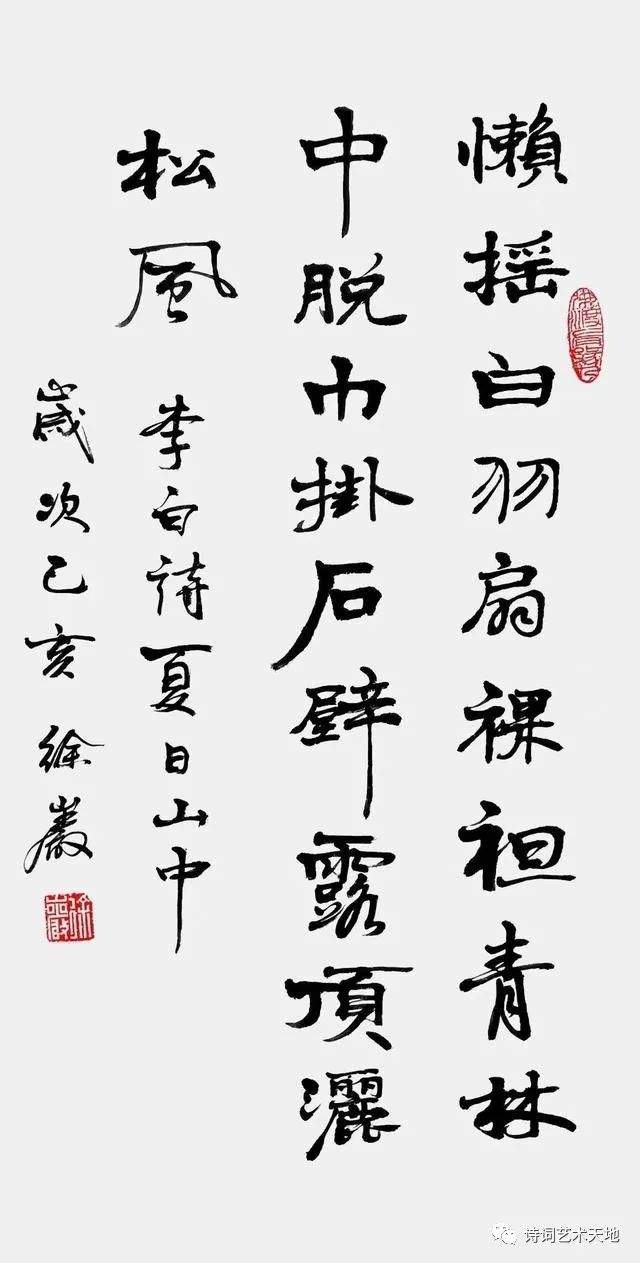 懶摇白羽扇裸袒青林
中脱巾掛石壁露頂灑
松風
李白詩夏日山中
歲次己亥徐巖
徐巖
诗词艺术天地